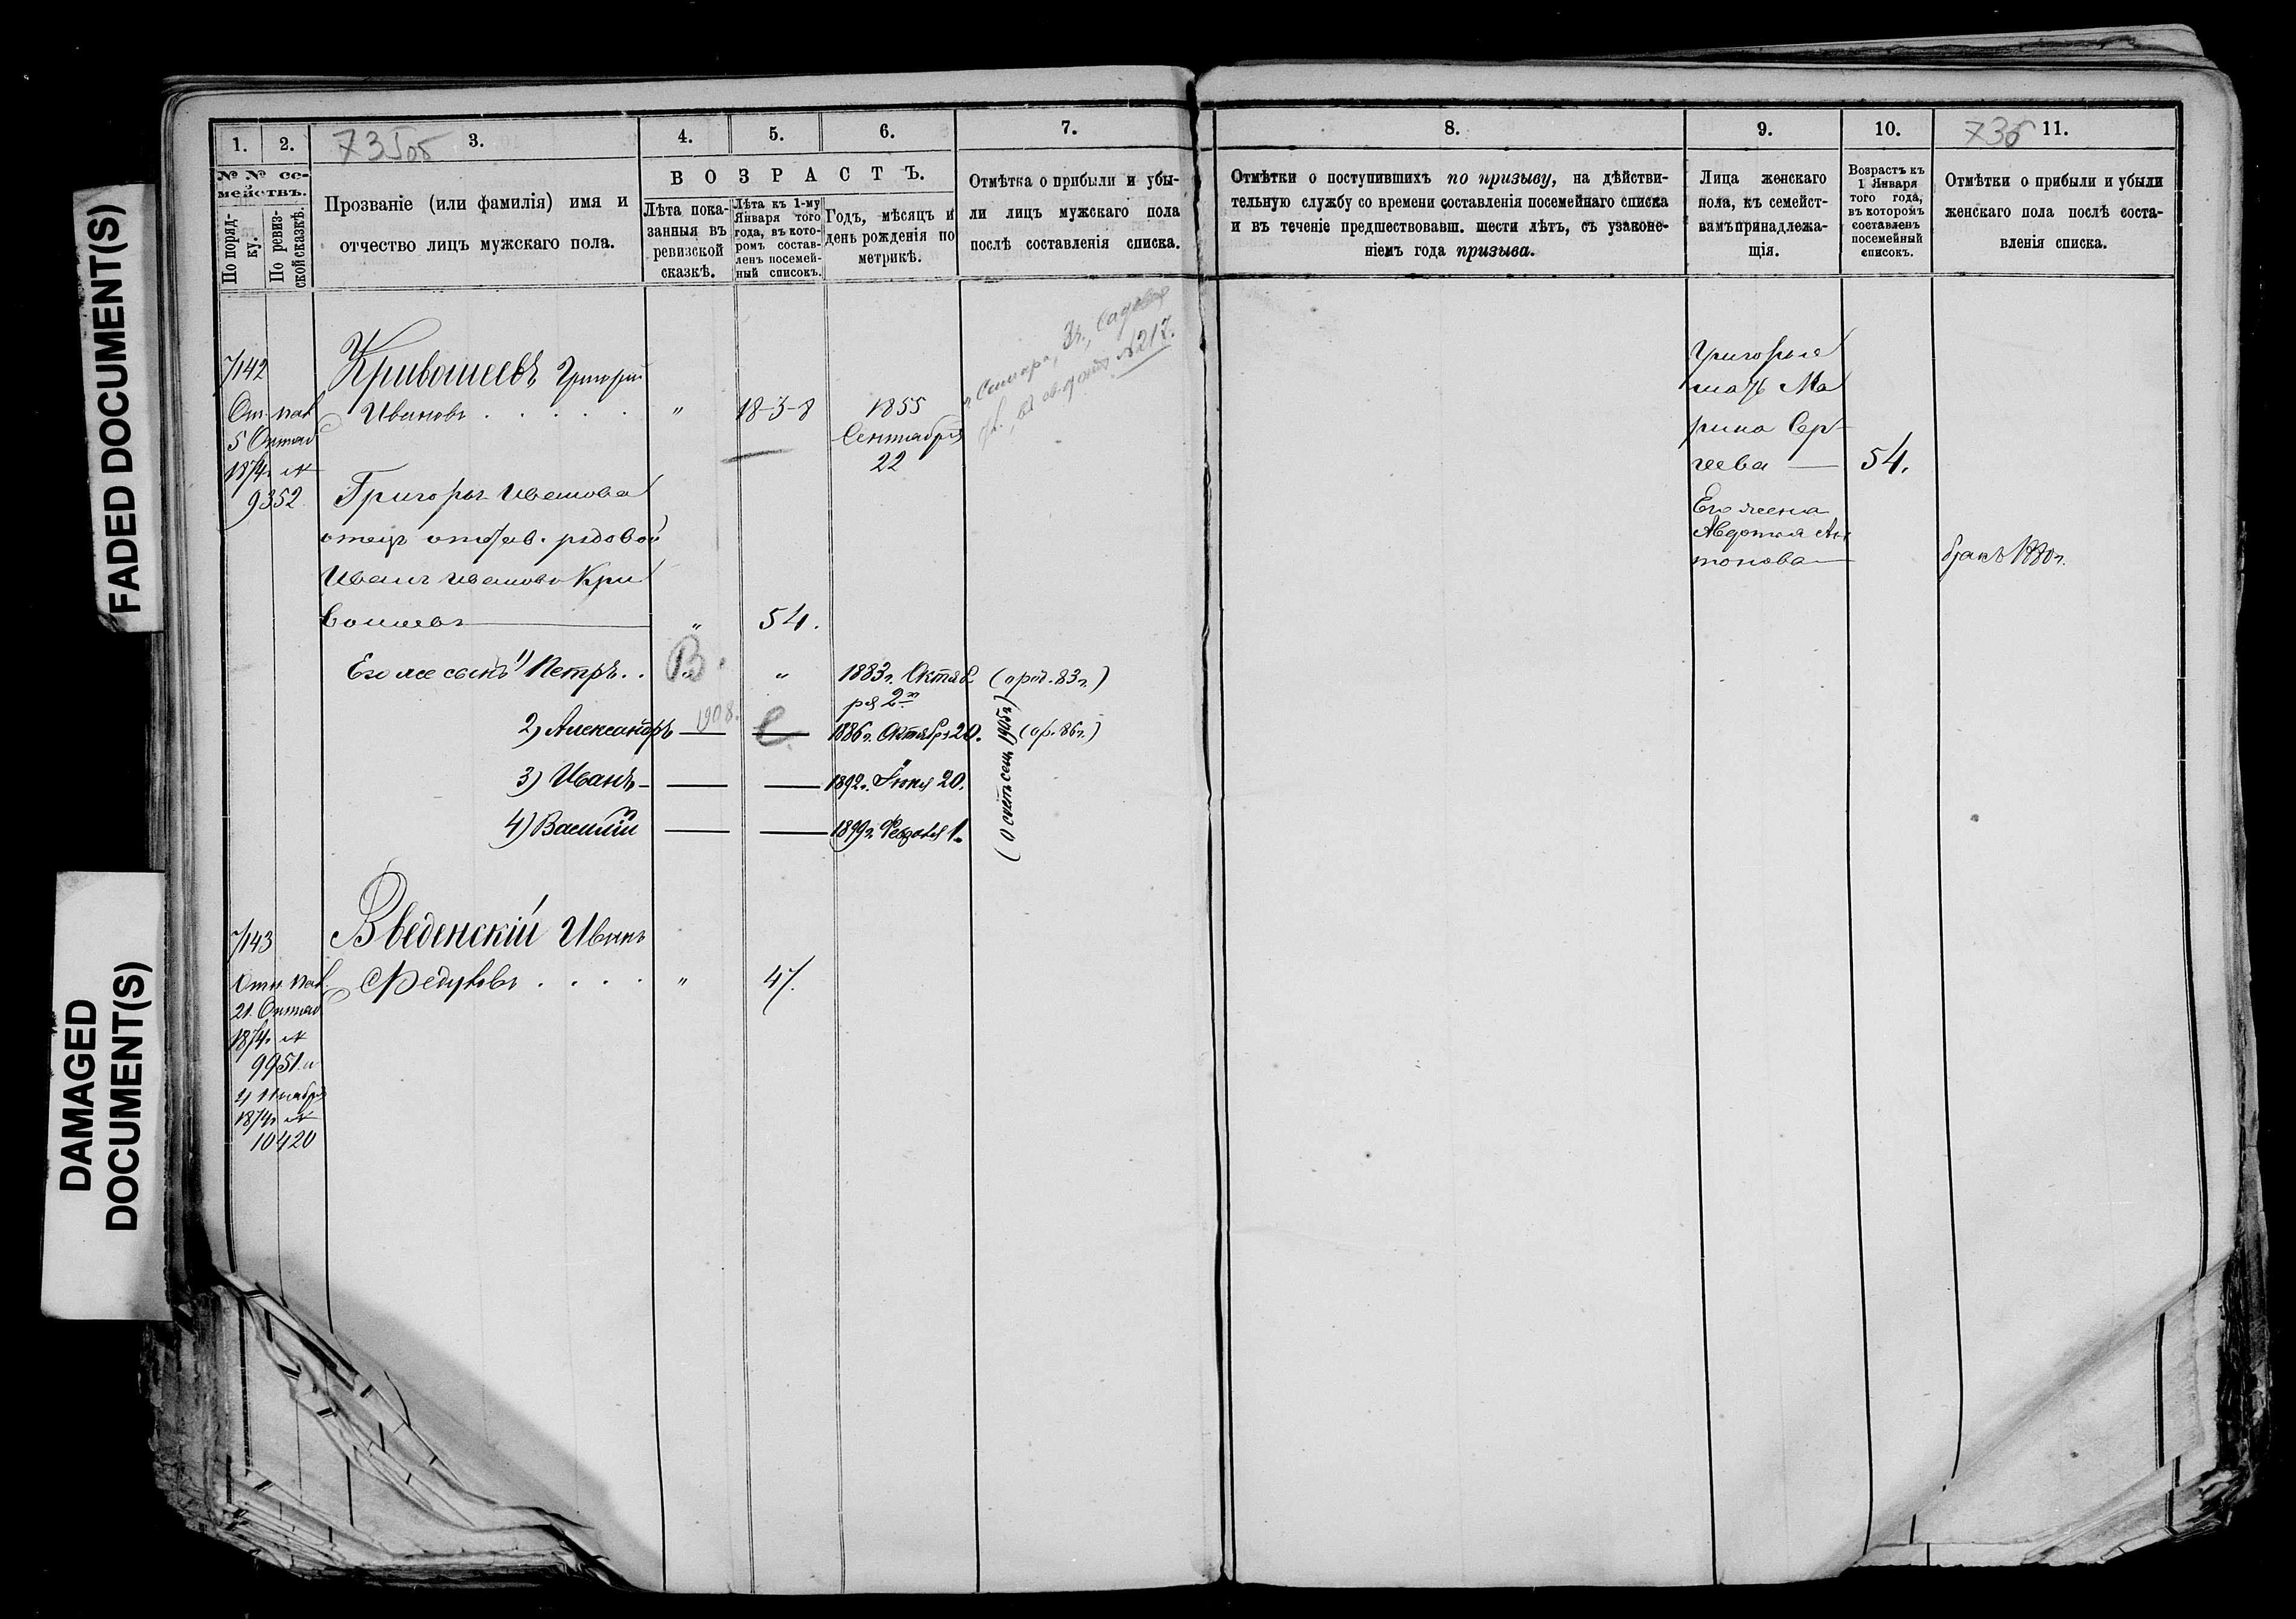 FADED DOCUMENT(S)
DAMAGED
DOCUMENT(S)
1.
2.
735 об
3.
4.
5.
6.
7.
№ № се-
мействъ.
По поряд-
ку.
По ревиз-
ской сказкѣ.
Прозваніе (или фамилія) имя и
отчество лицъ мужскаго пола.
ВОЗРАСТЪ.
Лѣта пока-
занныя въ
ревизской
сказкѣ.
Лѣта къ 1-му
Января того
года, въ кото-
ромъ состав-
ленъ посемей-
ный списокъ.
Годъ, мѣсяцъ и
день рожденія по
метрикѣ.
Отмѣтка о прибыли и убы-
ли лицъ мужскаго пола
послѣ составленія списка.
7142
5 Октяб
1874 г. №
9352
Кривошеевъ Григорій
Ивановъ . . . . . " 18-3-8 1855
Сентября
22
г. Самара, 3 ч., Садовая
№ 217.
Григорья Иванова
отецъ отстав. рядовой
Иванъ Ивановъ Кри
вошеевъ " 54.
Его же сынъ 1) Петръ . . В. " 1883 г. Октяб (о род. 83 г.)
ря 2го
2) Александръ 1908. С. 1886 г. Октября 20. (ор. 86 г.)
3) Иванъ 1892 г. Іюня 20.
4) Василій 1899 г. Февраля 1.
7143
21 Октяб
1874 г. №
9951 и
4 Ноября
1874 г. №
10420
Введенскій Иванъ
Федуловъ . . . . " 47.
8.
9.
10.
736
11.
Отмѣтки о поступившихъ по призыву, на дѣйстви-
тельную службу со времени составленія посемейнаго списка
и въ теченіе предшествовавш. шести лѣтъ, съ узаконе-
ніемъ года призыва.
Лица женскаго
пола, къ семейст-
вамъ принадлежа-
щія.
Возрастъ къ
1 Января
того года,
въ которомъ
составленъ
посемейный
списокъ.
Отмѣтки о прибыли и убыли
женскаго пола послѣ соста-
вленія списка.
Григорья
мать Ма
рина Сер
геева 54.
Его жена
Авдотья Ан
тонова
бракъ 1880 г.